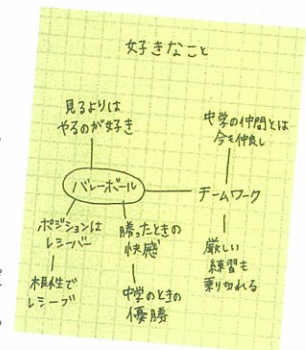 好きなこと
見るよりは
やるのが好き
中学の仲間とは
今も仲良し
バレーボール
チームワーク
ポジションは
レシーバー
勝ったときの
快感
厳しい
練習も
乗り切れる
根性で
レシーブ
中学のときの
優勝